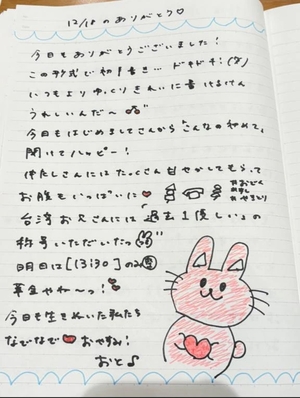 12/18のありがとう♡
今日もありがとうございました！
この形式で初！書き… ドキドキ！
いつもよりゆっくりきれいに書けるけん
うれしいんだ〜
今日もはじめましてさんから「こんなの初めて」
聞けてハッピー！
仲良しさんにはたっくさん甘やかしてもらって
お腹もいっぱいに
おでん
やきとり
台湾お兄さんには「過去1優しい」の
称号いただいたっ
明日は[13:30]のみ
華金やね〜っ！
今日も生きぬいた私たち
なでなで おやすみ！
おと♪